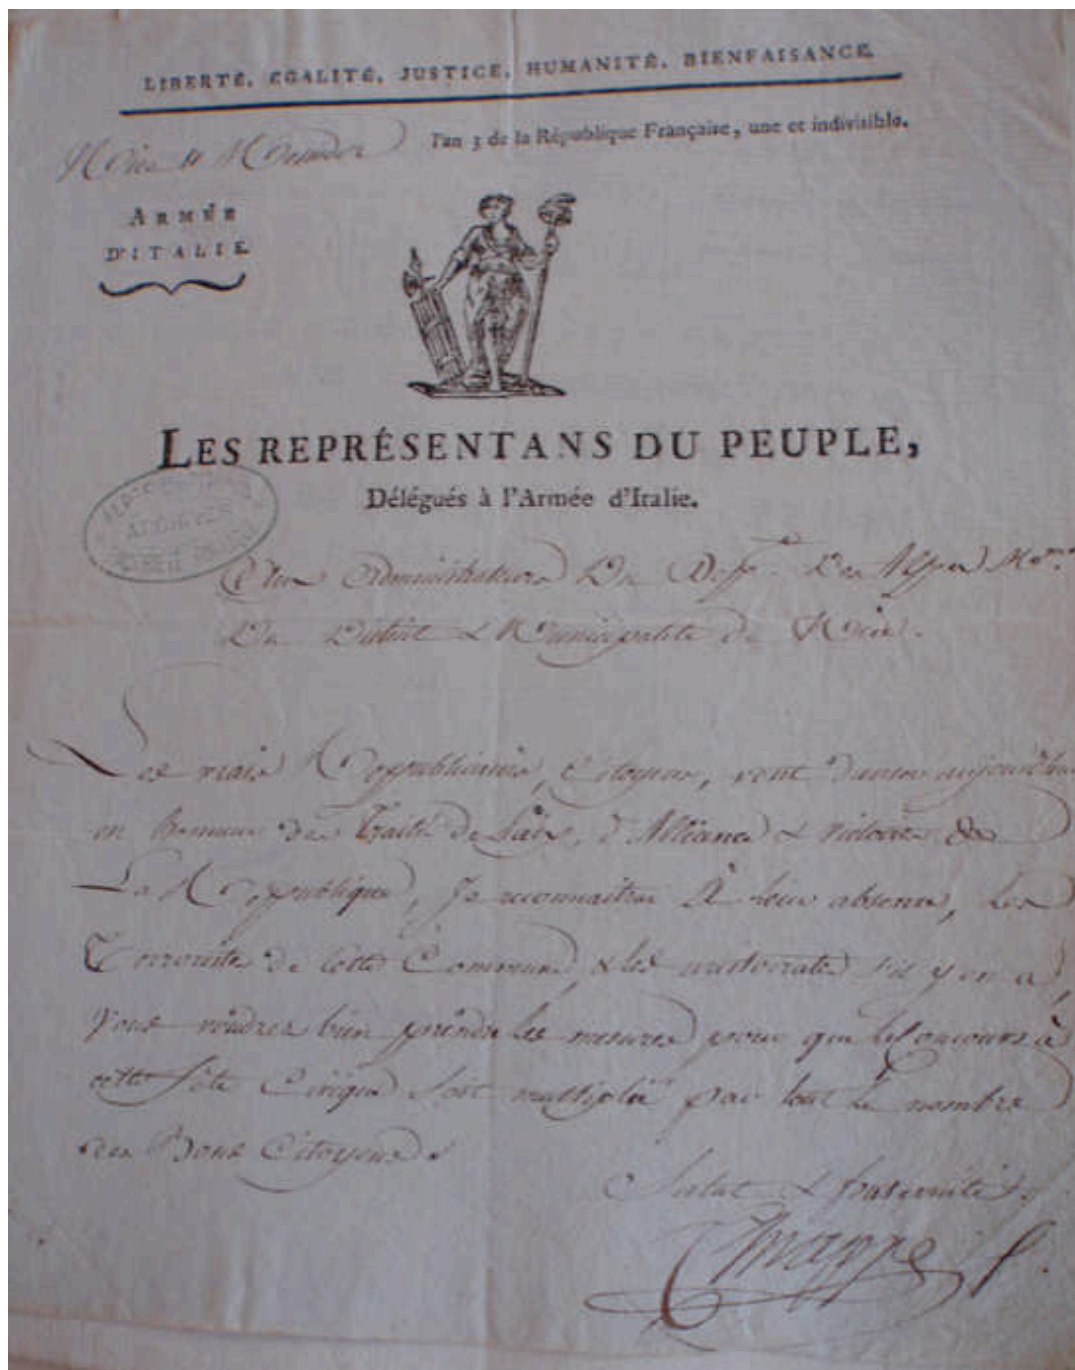 LIBERTÉ, EGALITÉ, JUSTICE, HUMANITÉ, BIENFAISANCE.
l'an 3 de la République Française, une et indivisible.
ARMÉE
D'ITALIE.
LES REPRÉSENTANS DU PEUPLE,
Délégués à l'Armée d'Italie.
Aux Administrateurs Du Des Alpes
Du District & Municipalité de Nice.
Les vrais Republicains, Citoyens, vont danser aujourd'hui
en honneur des Traités de Paix, d'Alliance & victoires de
La Republique, Je reconnaitrai à leur absence, les
Terroristes de cette Commune, & les aristocrates s'il y en a,
Vous voudrez bien prendre les mesures pour que le Concours à
cette fête Civique soit multiplié par tout le nombre
des Bons Citoyens.
Salut & fraternité.